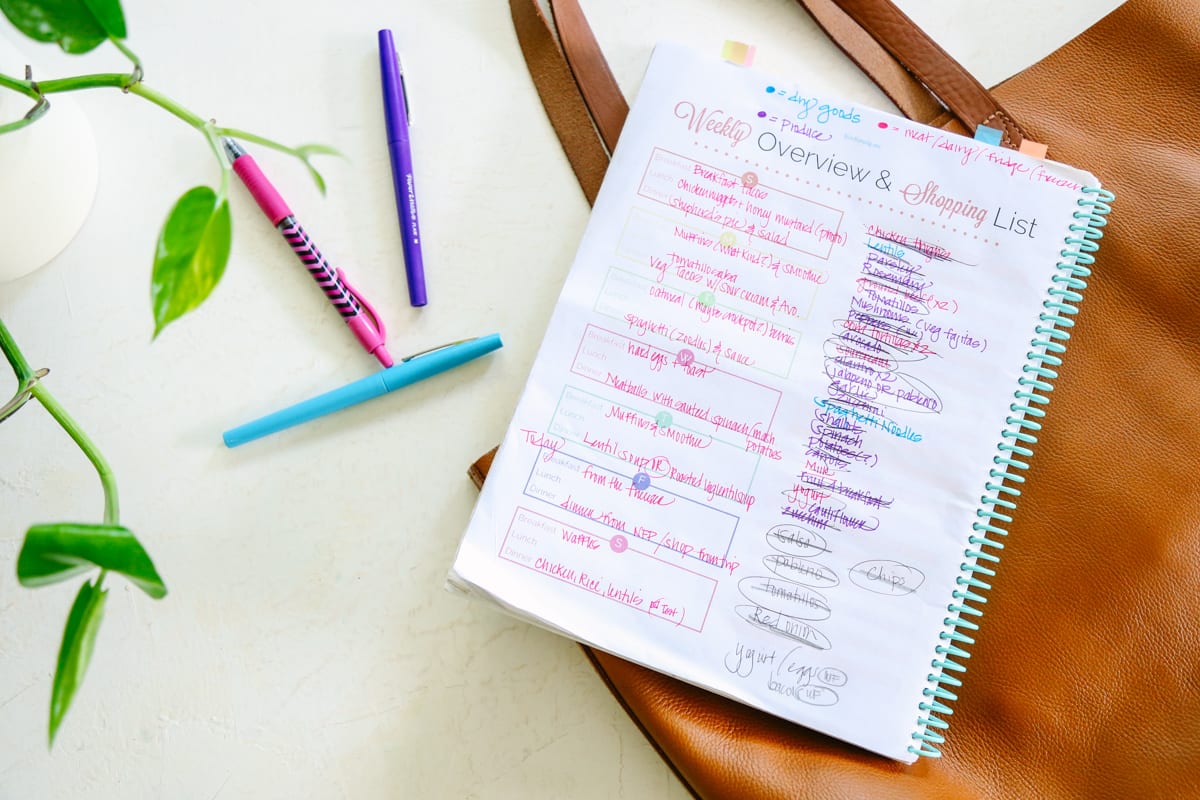 • = dry goods
• = Produce
• = meat/dairy/fridge/freezer
Weekly Overview & Shopping List
Breakfast
Lunch
Dinner
S
Breakfast Tacos
Chicken nuggets + honey mustard (photo)
Shepherd's pie & salad
M
Muffins (what kind?) & smoothie
tomatillo salsa
Veg Tacos w/ sour cream & Avo.
T
oatmeal (maybe crockpot?) berries
spaghetti (zoodles) & sauce
Breakfast
Lunch
Dinner
W
hard eggs & toast
Meatballs with sauteed spinach/mash potatoes
Breakfast
Lunch
Dinner
T
Muffins & smoothie
Lentil soup OR Roasted veg lentil soup
Today
Breakfast
Lunch
Dinner
F
from the freezer
dinner from NFP/shop from trip
Breakfast
Lunch
Dinner
S
Waffles
Chicken, Rice, lentils
Chicken thighs
Lentils
Parsley
Rosemary
(x2)
Tomatillos
Mushrooms (veg fajitas)
avocado
cilantro x2
jalapeno OR pablano
Garlic
Spaghetti Noodles
Shallot
Spinach
Potatoes (?)
carrots
Milk
yogurt
cauliflower
zucchini
Salsa
pableno
Chips
Tomatillos
Red onion
yogurt/eggs WF
bacon WF